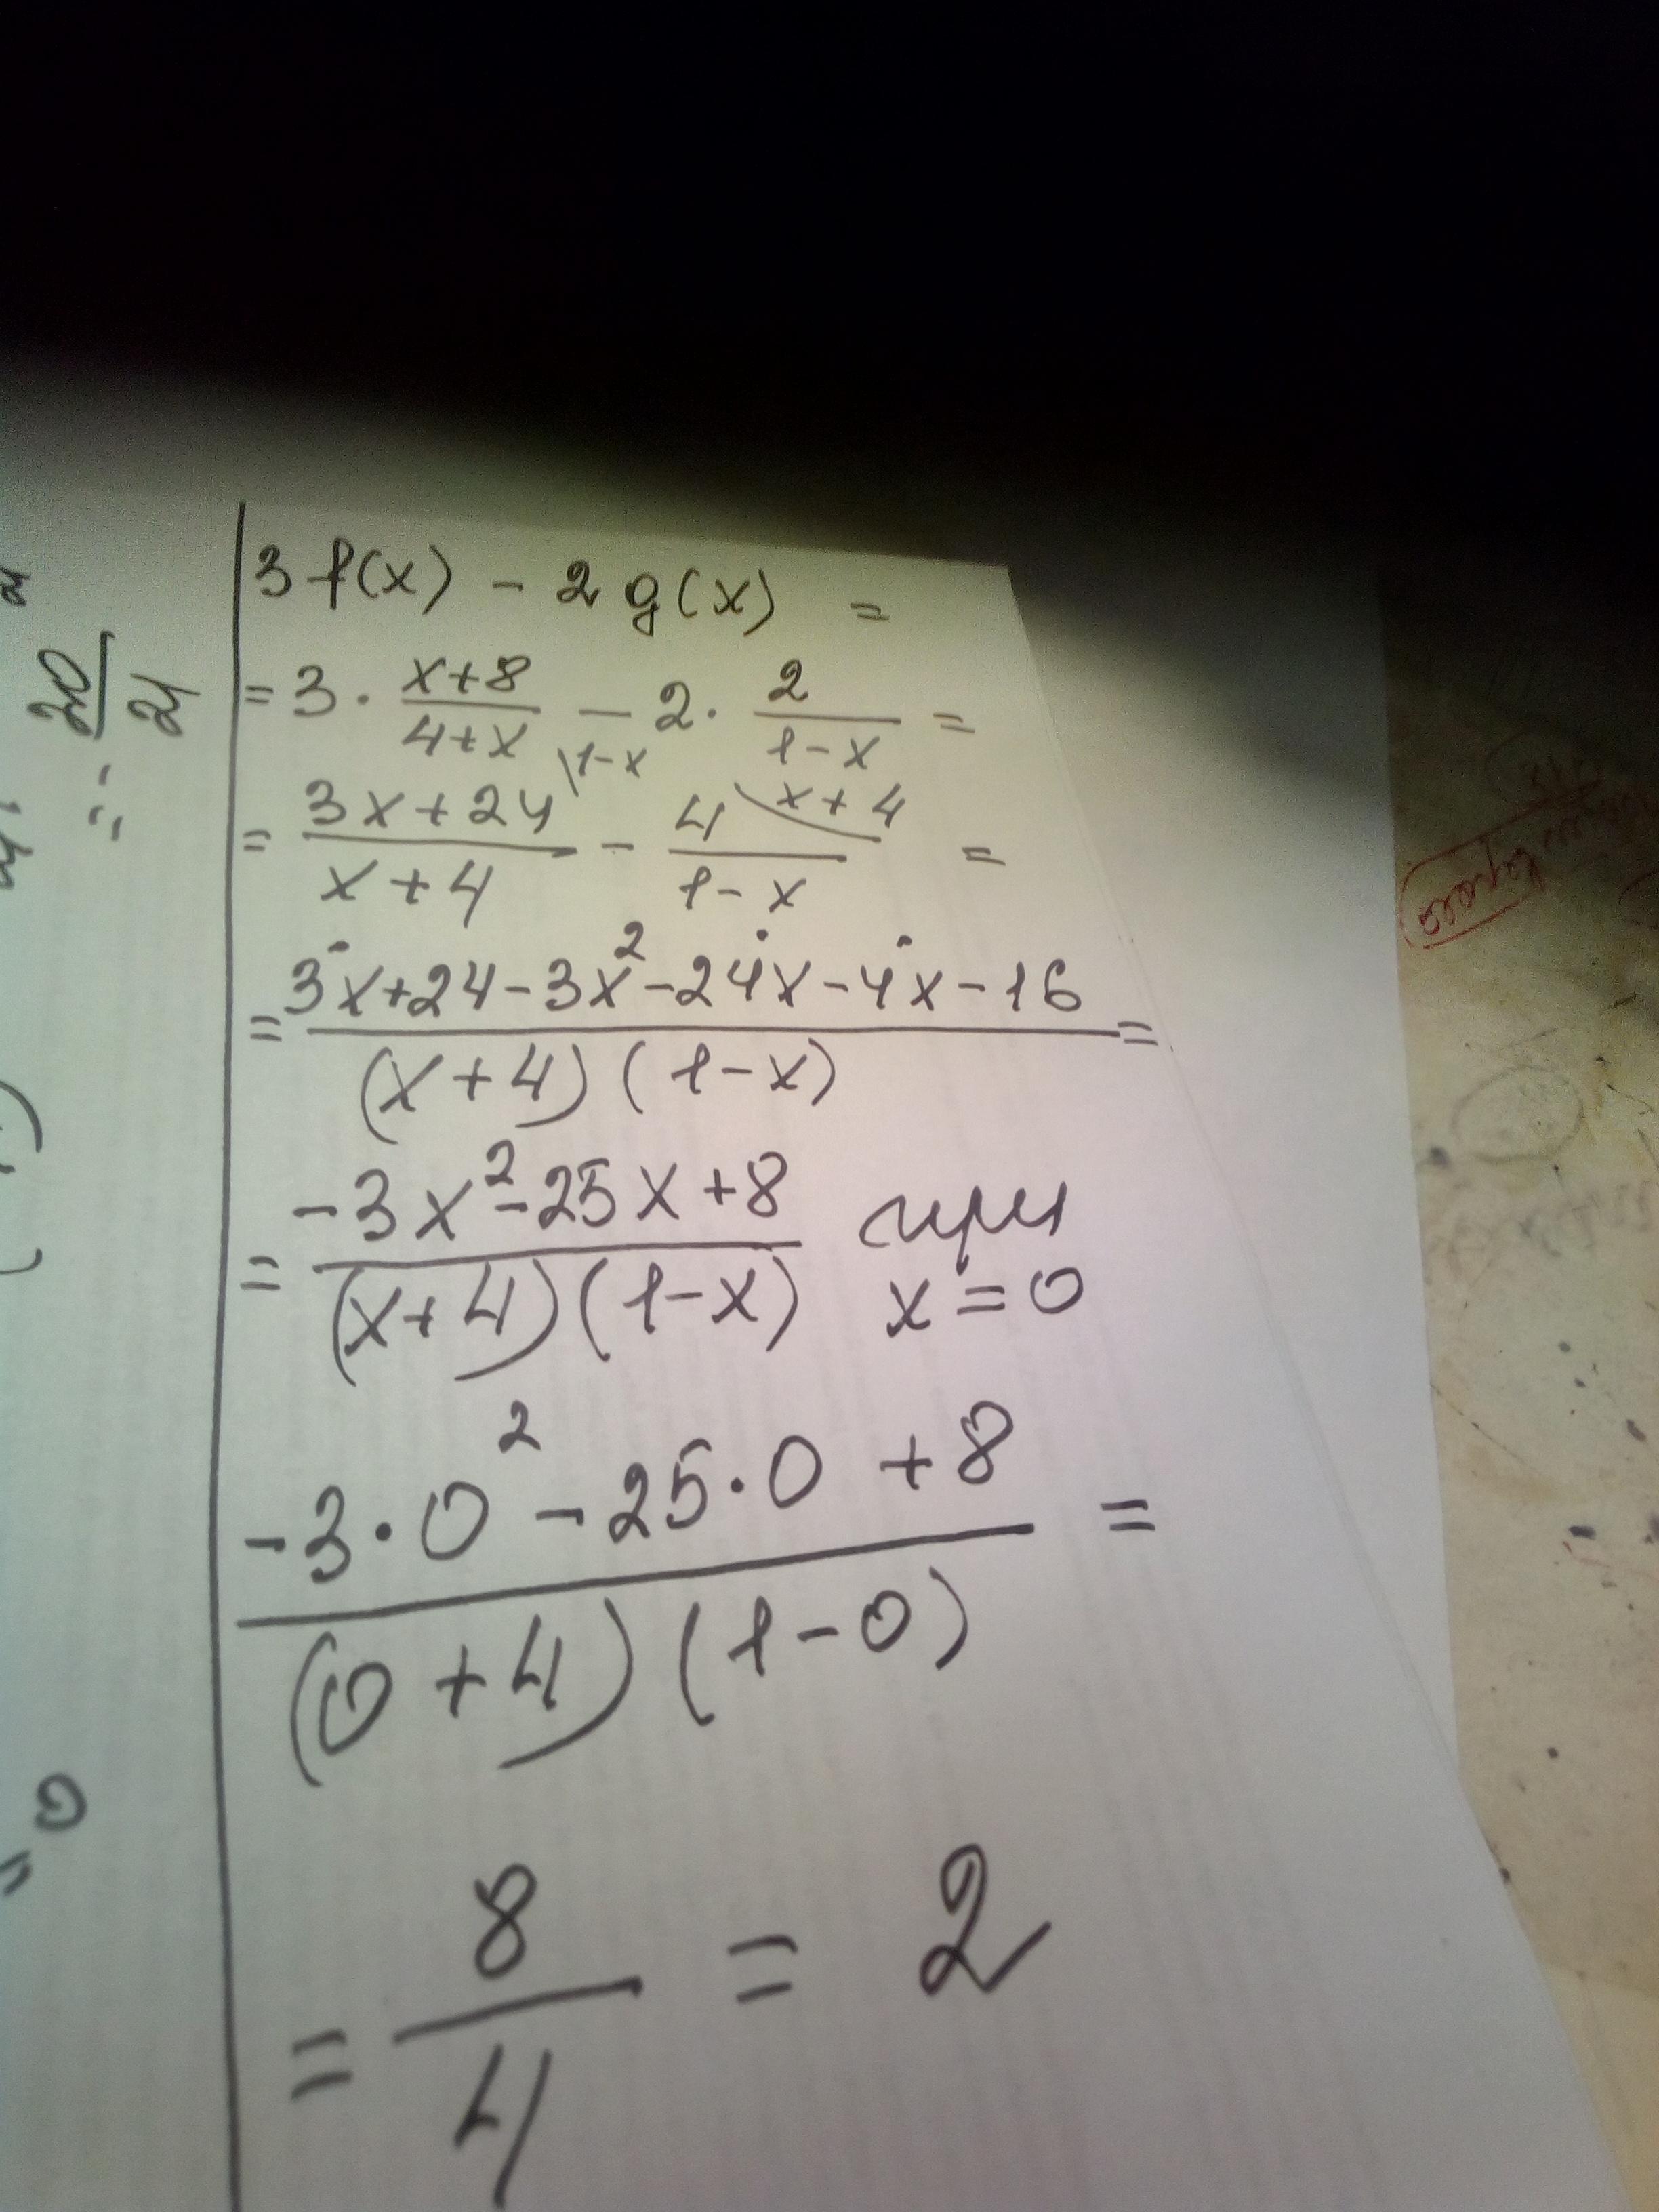 3 f(x) - 2 g(x) =
= 3 · (x+8)/(4+x) - 2 · 2/(1-x) =
= (3x+24)/(x+4) \1-x - 4/(1-x) \x+4 =
= (3x+24-3x²-24x-4x-16)/((x+4)(1-x)) =
= (-3x²-25x+8)/((x+4)(1-x)) при x=0
(-3·0²-25·0+8)/((0+4)(1-0)) =
= 8/4 = 2
= 0